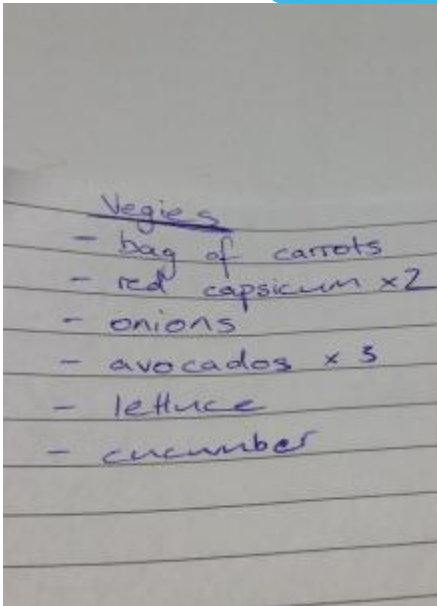 Vegies
- bag of carrots
- red capsicum x2
- onions
- avocados x 3
- lettuce
- cucumber